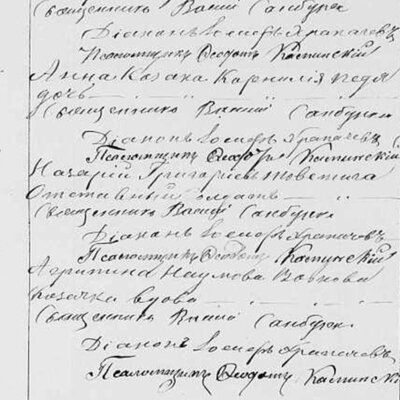 Священникъ Василій Самбурскі
Діаконъ Іосифъ Храпачевъ
Псаломщикъ Ѳеодотъ Котинскій
Анна Козака Корнилія
дочь
Священникъ Василій Самбурскі
Діаконъ Іосифъ Храпачевъ
Псаломщикъ Ѳеодотъ Котинскій
Назарій Григорьевъ
Отставный солдатъ
Священникъ Василій Самбурскі
Діаконъ Іосифъ Храпачевъ
Псаломщикъ Ѳеодотъ Котинскій
Агрипина Наумова Вовкова
козачка вдова
Священникъ Василій Самбурскі
Діаконъ Іосифъ Храпачевъ
Псаломщикъ Ѳеодотъ Котинскі